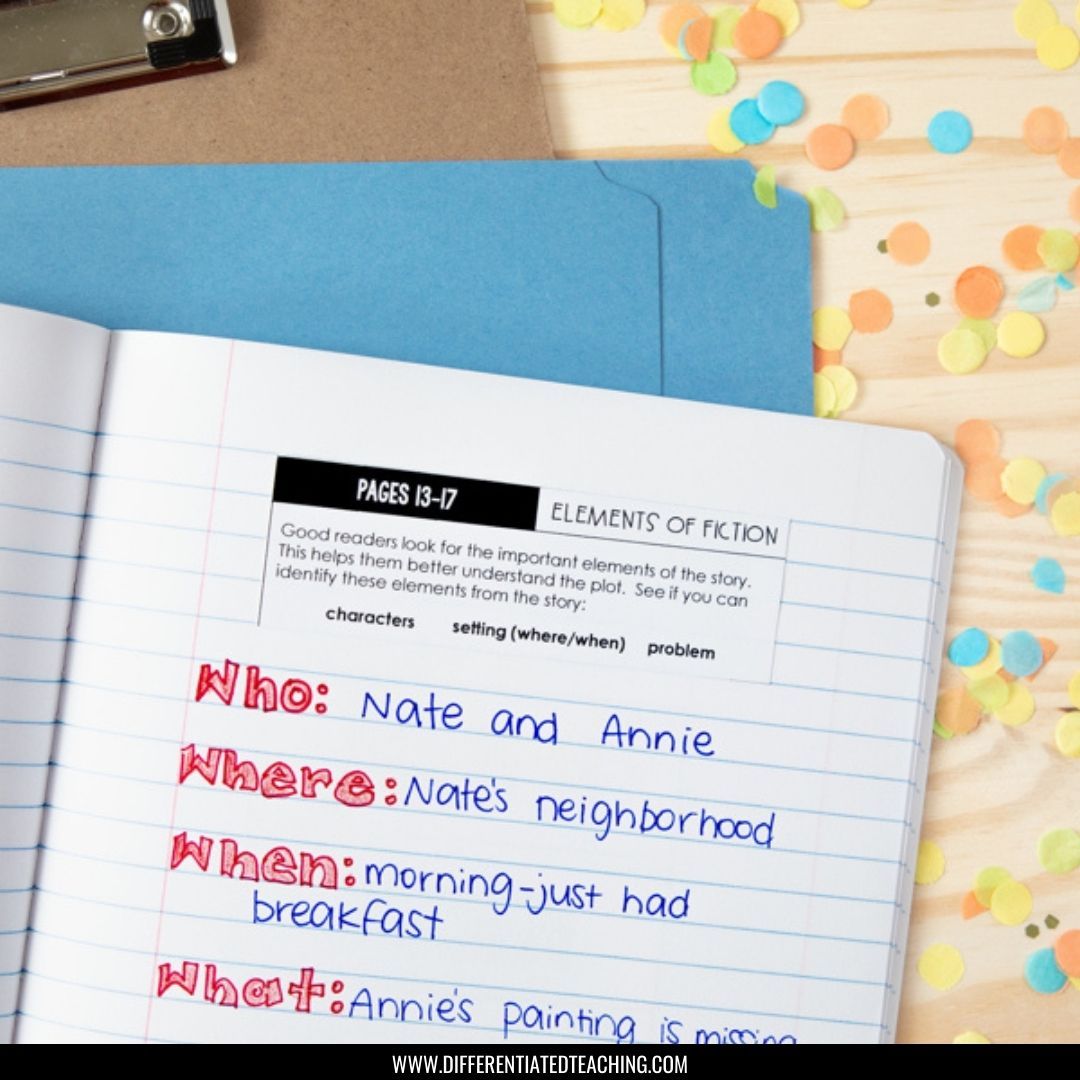 PAGES 13-17
ELEMENTS OF FICTION
Good readers look for the important elements of the story.
This helps them better understand the plot. See if you can
identify these elements from the story:
characters setting (where/when) problem
Who: Nate and Annie
Where: Nate's neighborhood
When: morning-just had
breakfast
What: Annie's painting is missing
WWW.DIFFERENTIATEDTEACHING.COM